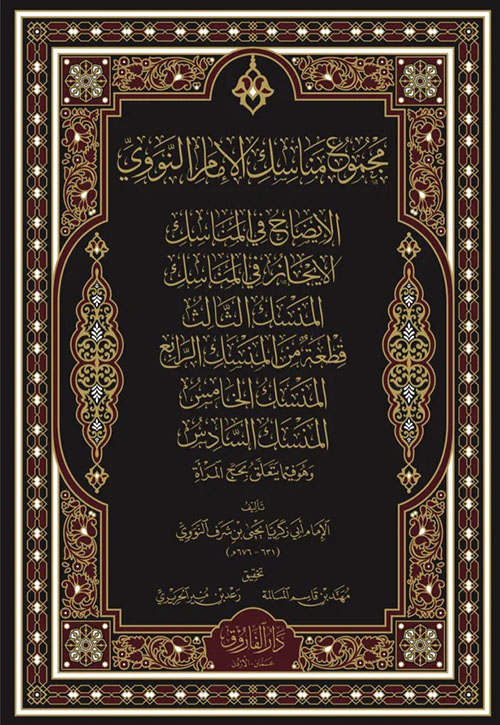 مجموع مناسك الإمام النووي
الإيضاح في المناسك
الإيجاز في المناسك
المنسك الثالث
قطعة من المنسك الرابع
المنسك الخامس
المنسك السادس
وهو فيما يتعلق بحج المرأة
تأليف
الإمام أبي زكريا يحيى بن شرف النووي
(٦٣١-٦٧٦هـ)
تحقيق
مهند بن قاسم المسالمة رعد بن منير الحريري
دار الفاروق
عمان - الأردن